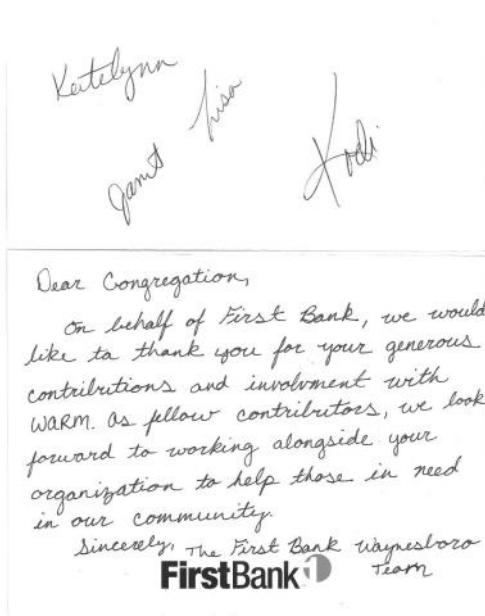 Katelynn
Lisa
Janet
Kodi
Dear Congregation,
On behalf of First Bank, we would
like to thank you for your generous
contributions and involvment with
WARM. As fellow contributors, we look
forward to working alongside your
organization to help those in need
in our community.
Sincerely, The First Bank Waynesboro
Team
FirstBank